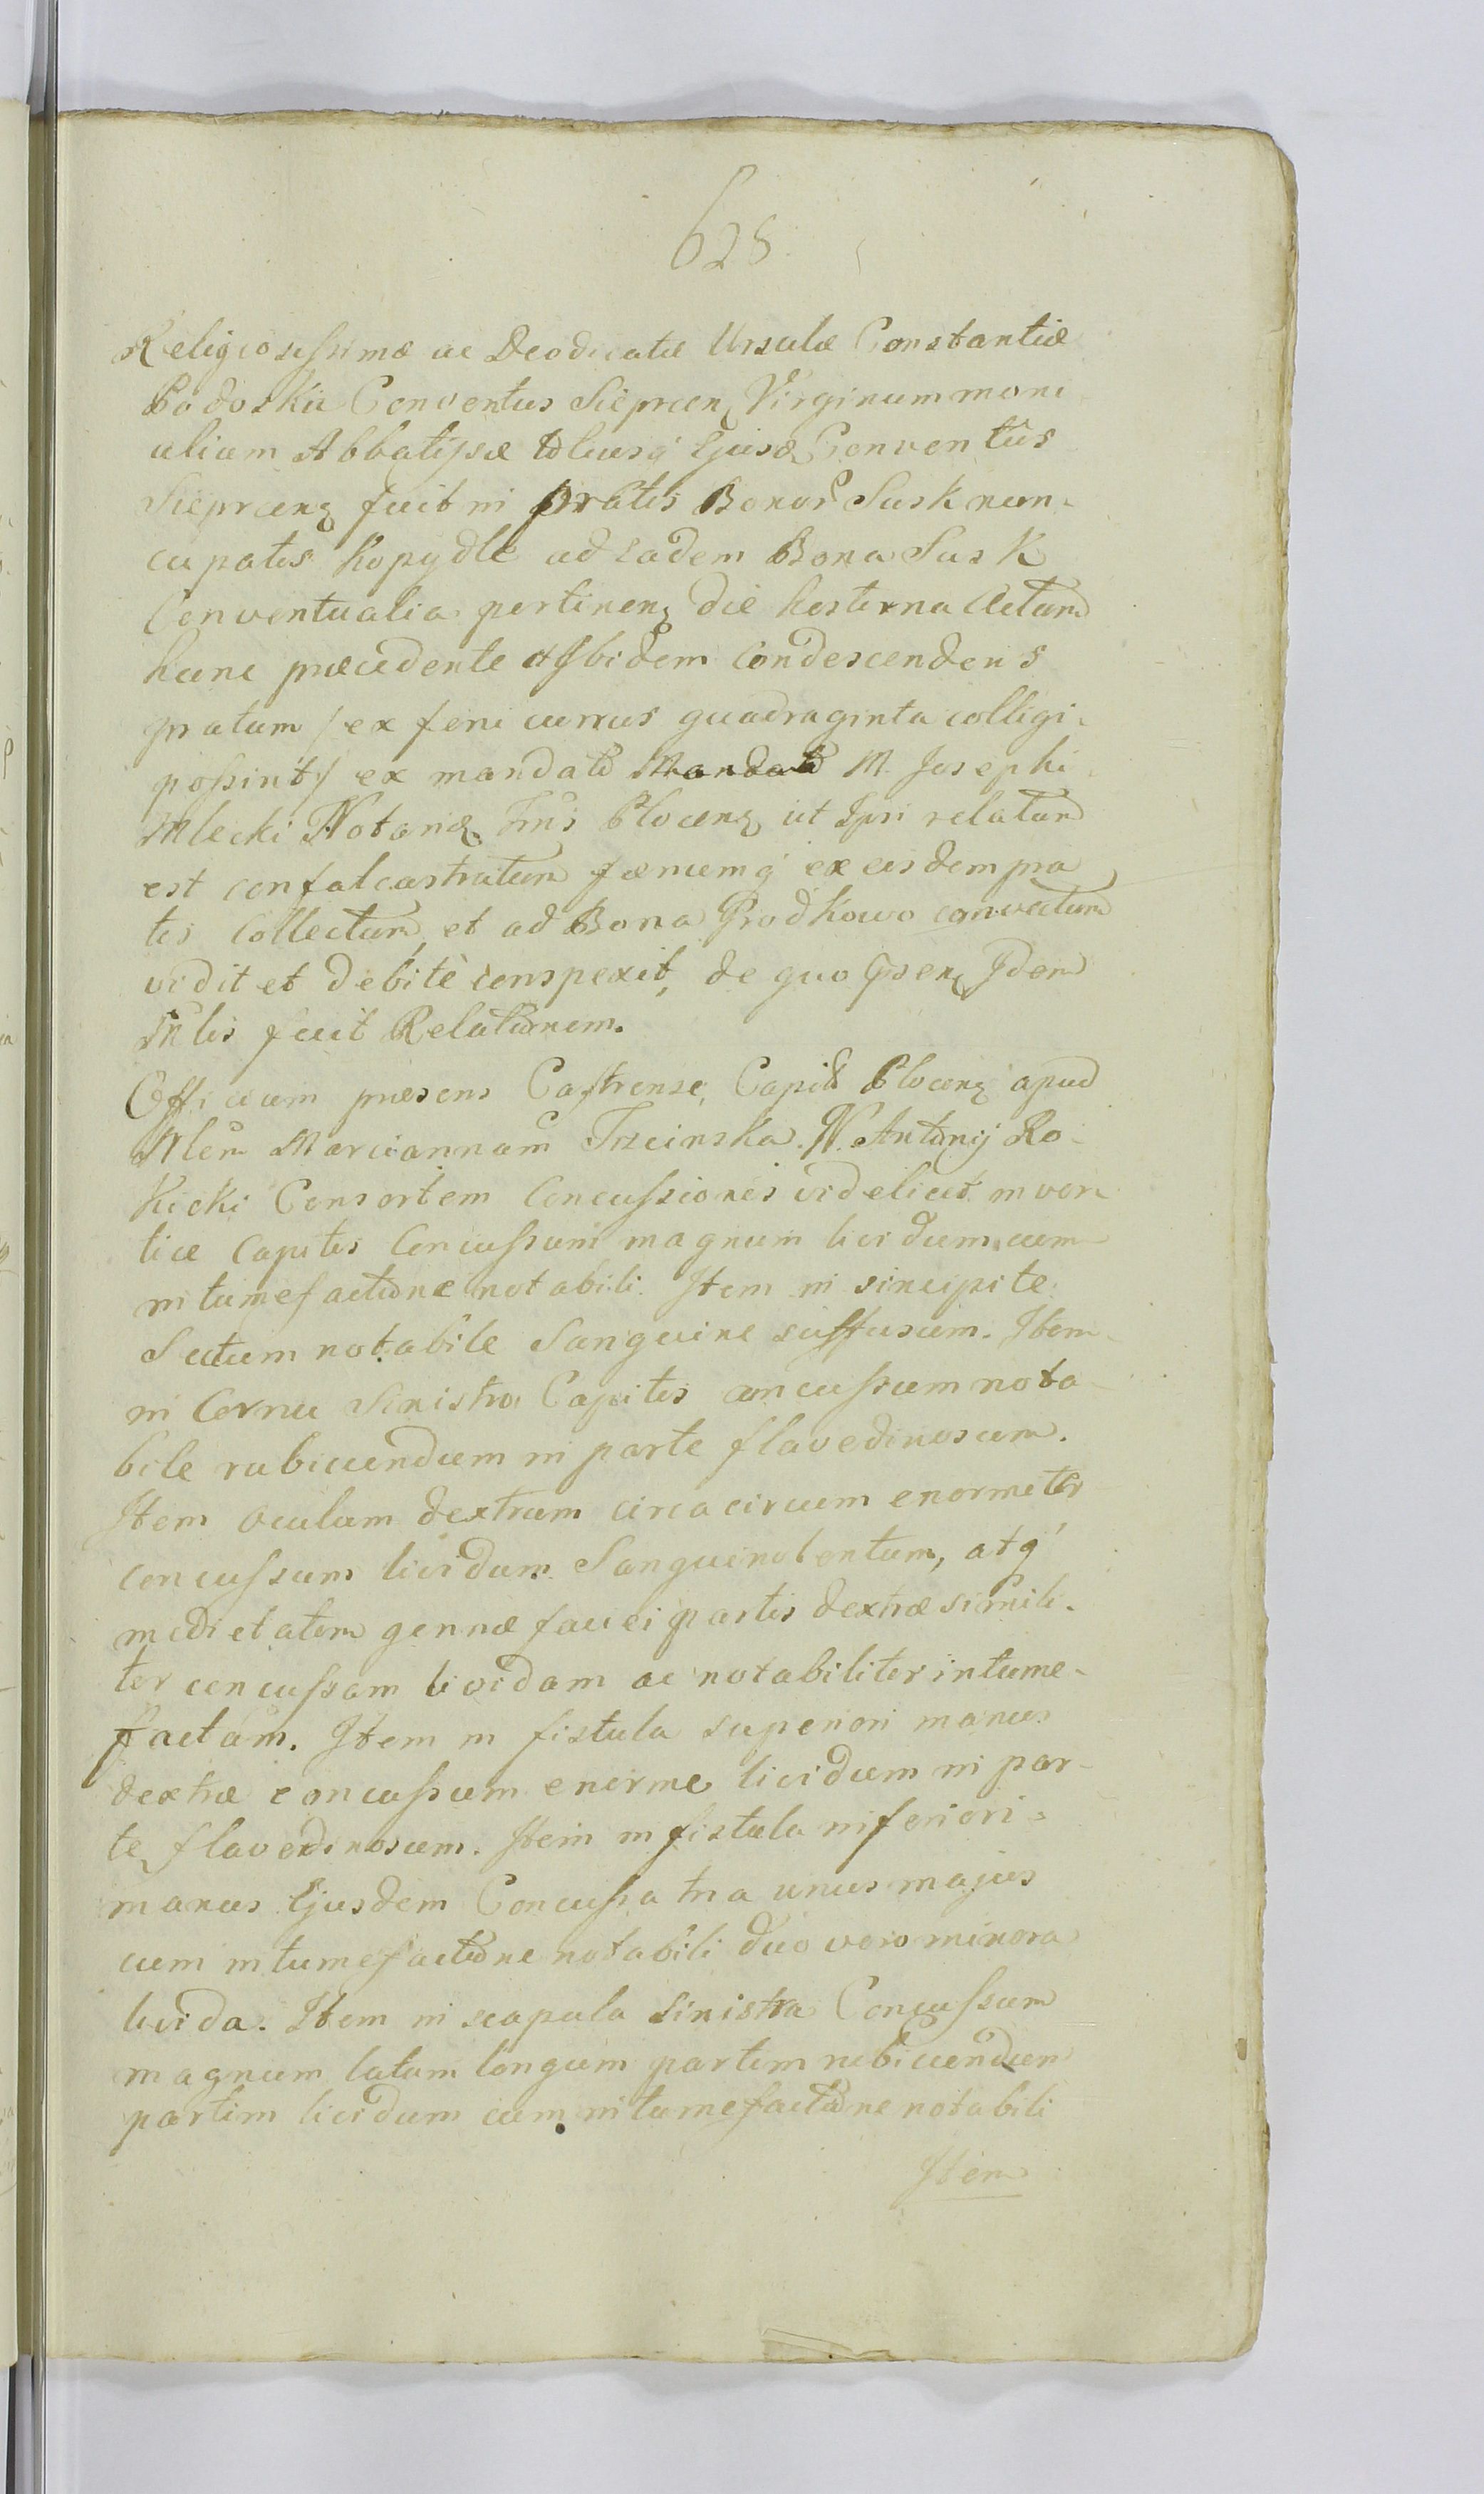 625.
Religiosissimæ ac Deodicatæ Ursulæ Constantiæ
Podoskiæ Conventus Sieprcen Virginum moni
alium Abbatissæ  Ejusd Conventûs
Sieprcen fuit in pratis Bonor Susk nun-
cupatis Kopydle ad eadem Bona Susk
Conventualia pertinen die hesterna Actum
hunc præcedente Ibidem condescendens
pratum / ex feni currus quadraginta colligi
possint / ex mandato Mandato M. Josephi
Mlecki Notarij Tris Plocen ut Ipsi relatum
est confalcastratum fænumq ex eisdem pra
tis Collectum, et ad Bona Grodkowo convectum
vidit et debitè conspexit, de quo psen Idem
Mlis fecit Relationem.
Officium præsens Castrense, Capit Plocen apud
Mlem Mariannam Trzcinska N. Antonij Ro-
kicki Consortem Concussiones videlicet in ver
tice Capitis Concussum magnum lividum cum
intumefactione notabili. Item in sincipite
Sectum notabile Sanguine suffusum. Item
in Cornu Sinistro Capitis concussum nota
bile rubicundum in parte flavedinosum.
Item oculum dextrum circa circum enormiter
concussum lividum Sanguinolentum, atq
medietatem gennæ faciei partis dextræ simili-
ter concussam lividam ac notabiliter intume-
factam. Item in fistula superiori manus
dextræ concussum enorme lividum in par-
te flavedinosum. Item in fistula inferiori
manus Ejusdem Concussa tria unus majus
cum intumefactione notabili duo vero minora
livida. Item in scapula Sinistra Concussum
magnum latum longum partim rubicundum
partim lividum cum intumefactione notabili
Item